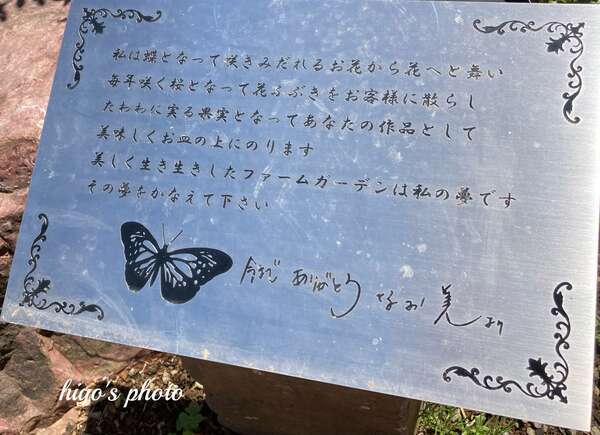 私は蝶となって咲きみだれるお花から花へと舞い
毎年咲く桜となって花ふぶきをお客様に散らし
たわわに実る果実となってあなたの作品として
美味しくお皿の上にのります
美しく生き生きしたファームガーデンは私の夢です
その夢をかなえて下さい
今まで ありがとう なお 美 より
higo's photo